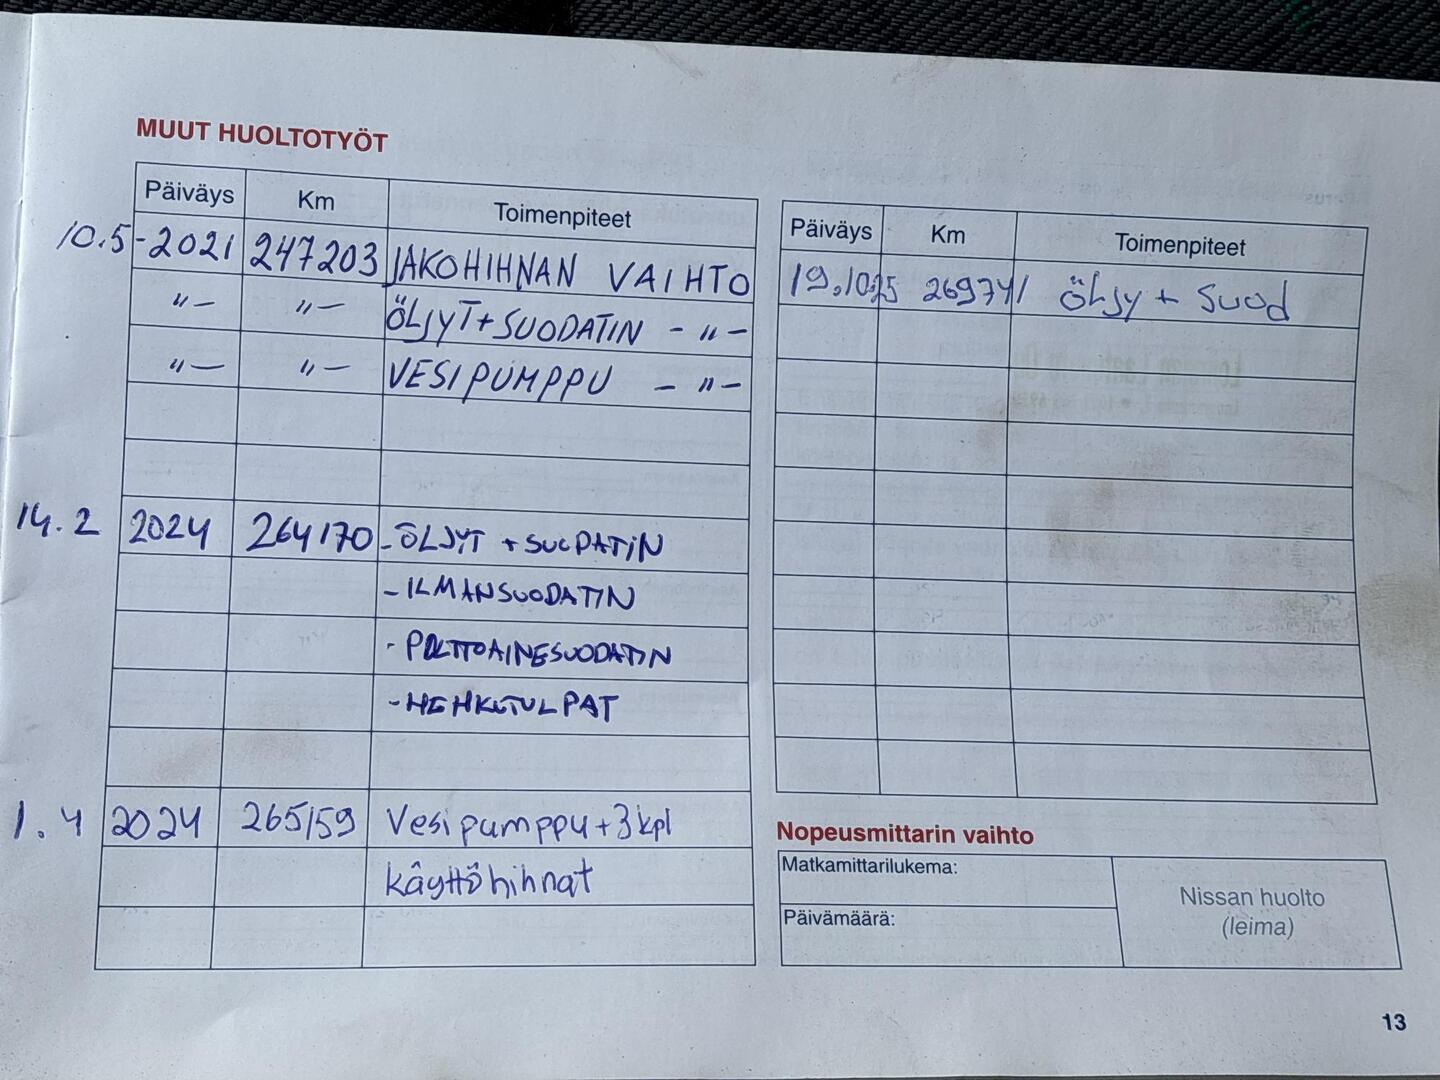 MUUT HUOLTOTYÖT
Päiväys Km Toimenpiteet
10.5-2021 247203 JAKOHIHNAN VAIHTO
-"- -"- ÖLJYT+SUODATIN -"-
-"- -"- VESIPUMPPU -"-
14.2 2024 264170 -ÖLJYT +SUODATIN
-ILMANSUODATIN
-POLTTOAINESUODATIN
-HEHKUTULPAT
1.4 2024 265159 Vesipumppu+3kpl
käyttöhihnat
Päiväys Km Toimenpiteet
19.10.25 269741 Öljy + Suod
Nopeusmittarin vaihto
Matkamittarilukema:
Päivämäärä:
Nissan huolto
(leima)
13